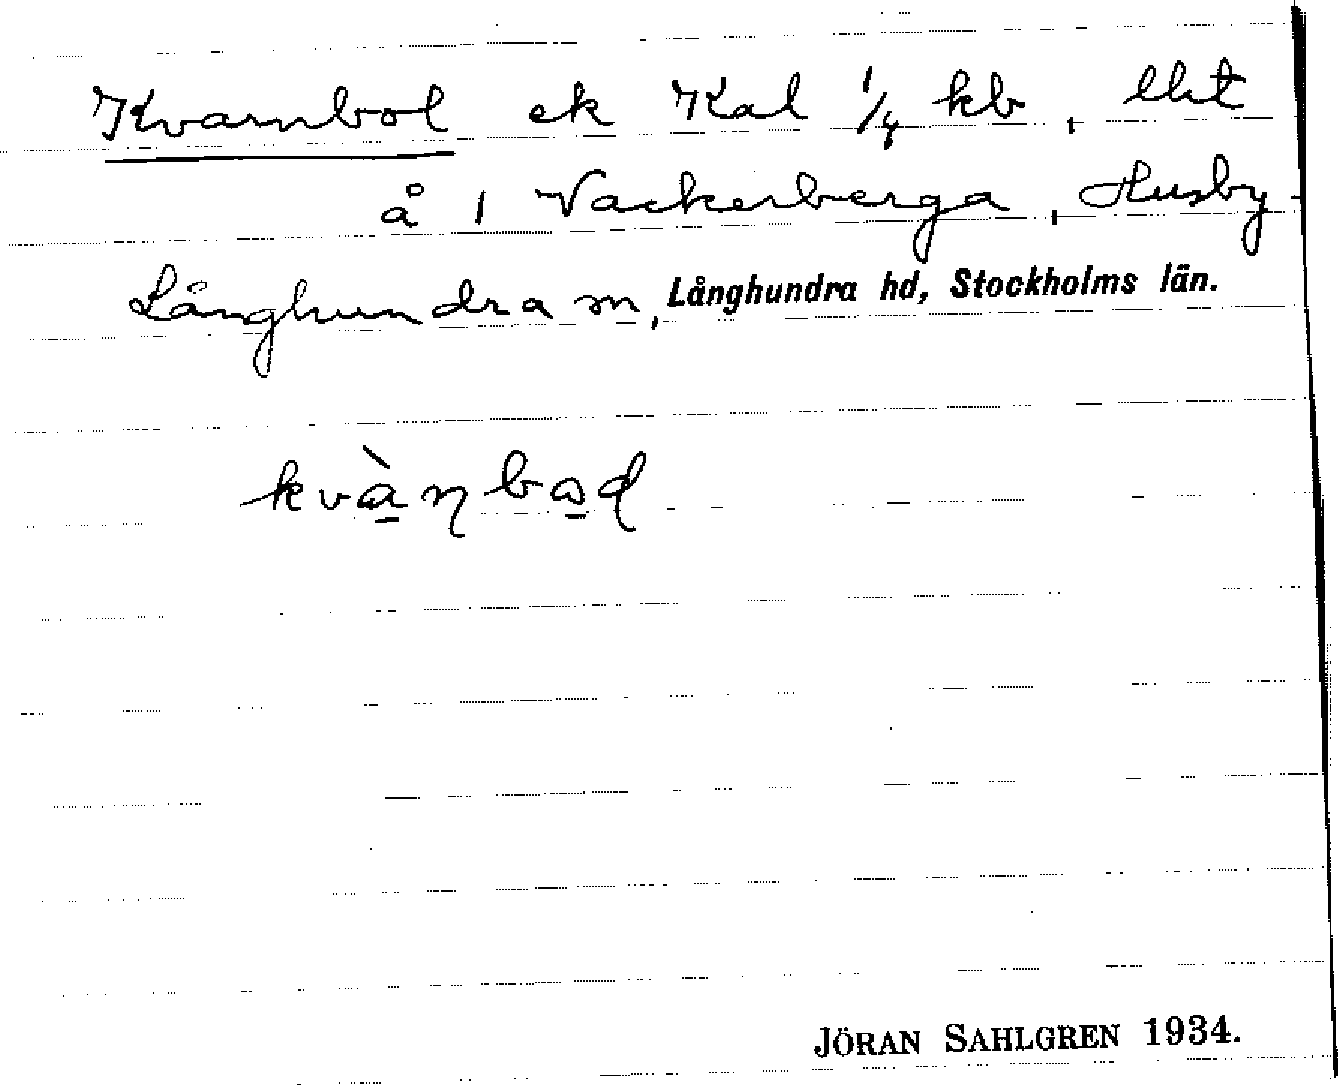 Kvarnbol ek Kal 1/4 kb, lht
å 1 Vackerberga, Husby-
Långhundra sn, Långhundra hd, Stockholms län.
kvàɳboɭ
JÖRAN SAHLGREN 1934.